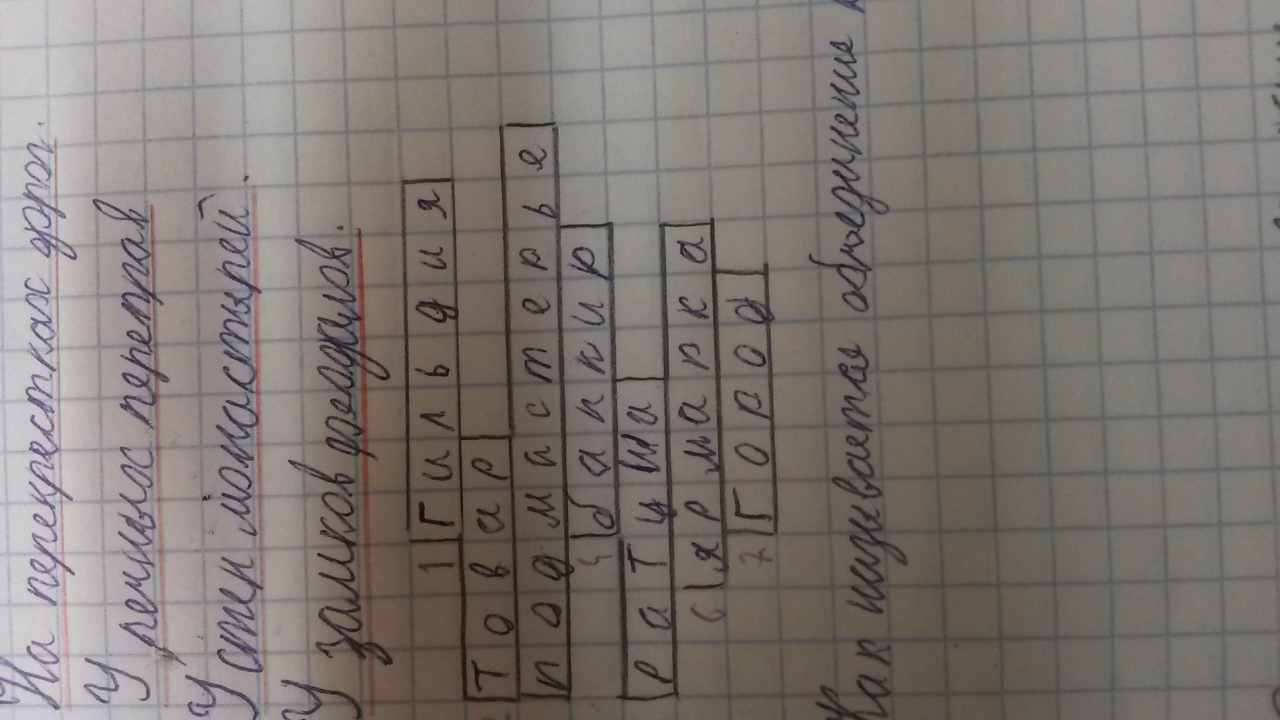 На перекрестках дорог.
У речных переправ
У стен монастырей.
У замков феодалов.
1 Гильдия
Товар
подмастерье
4 банкир
Ратуша
6 ярмарка
7 Город
Как называется объединение